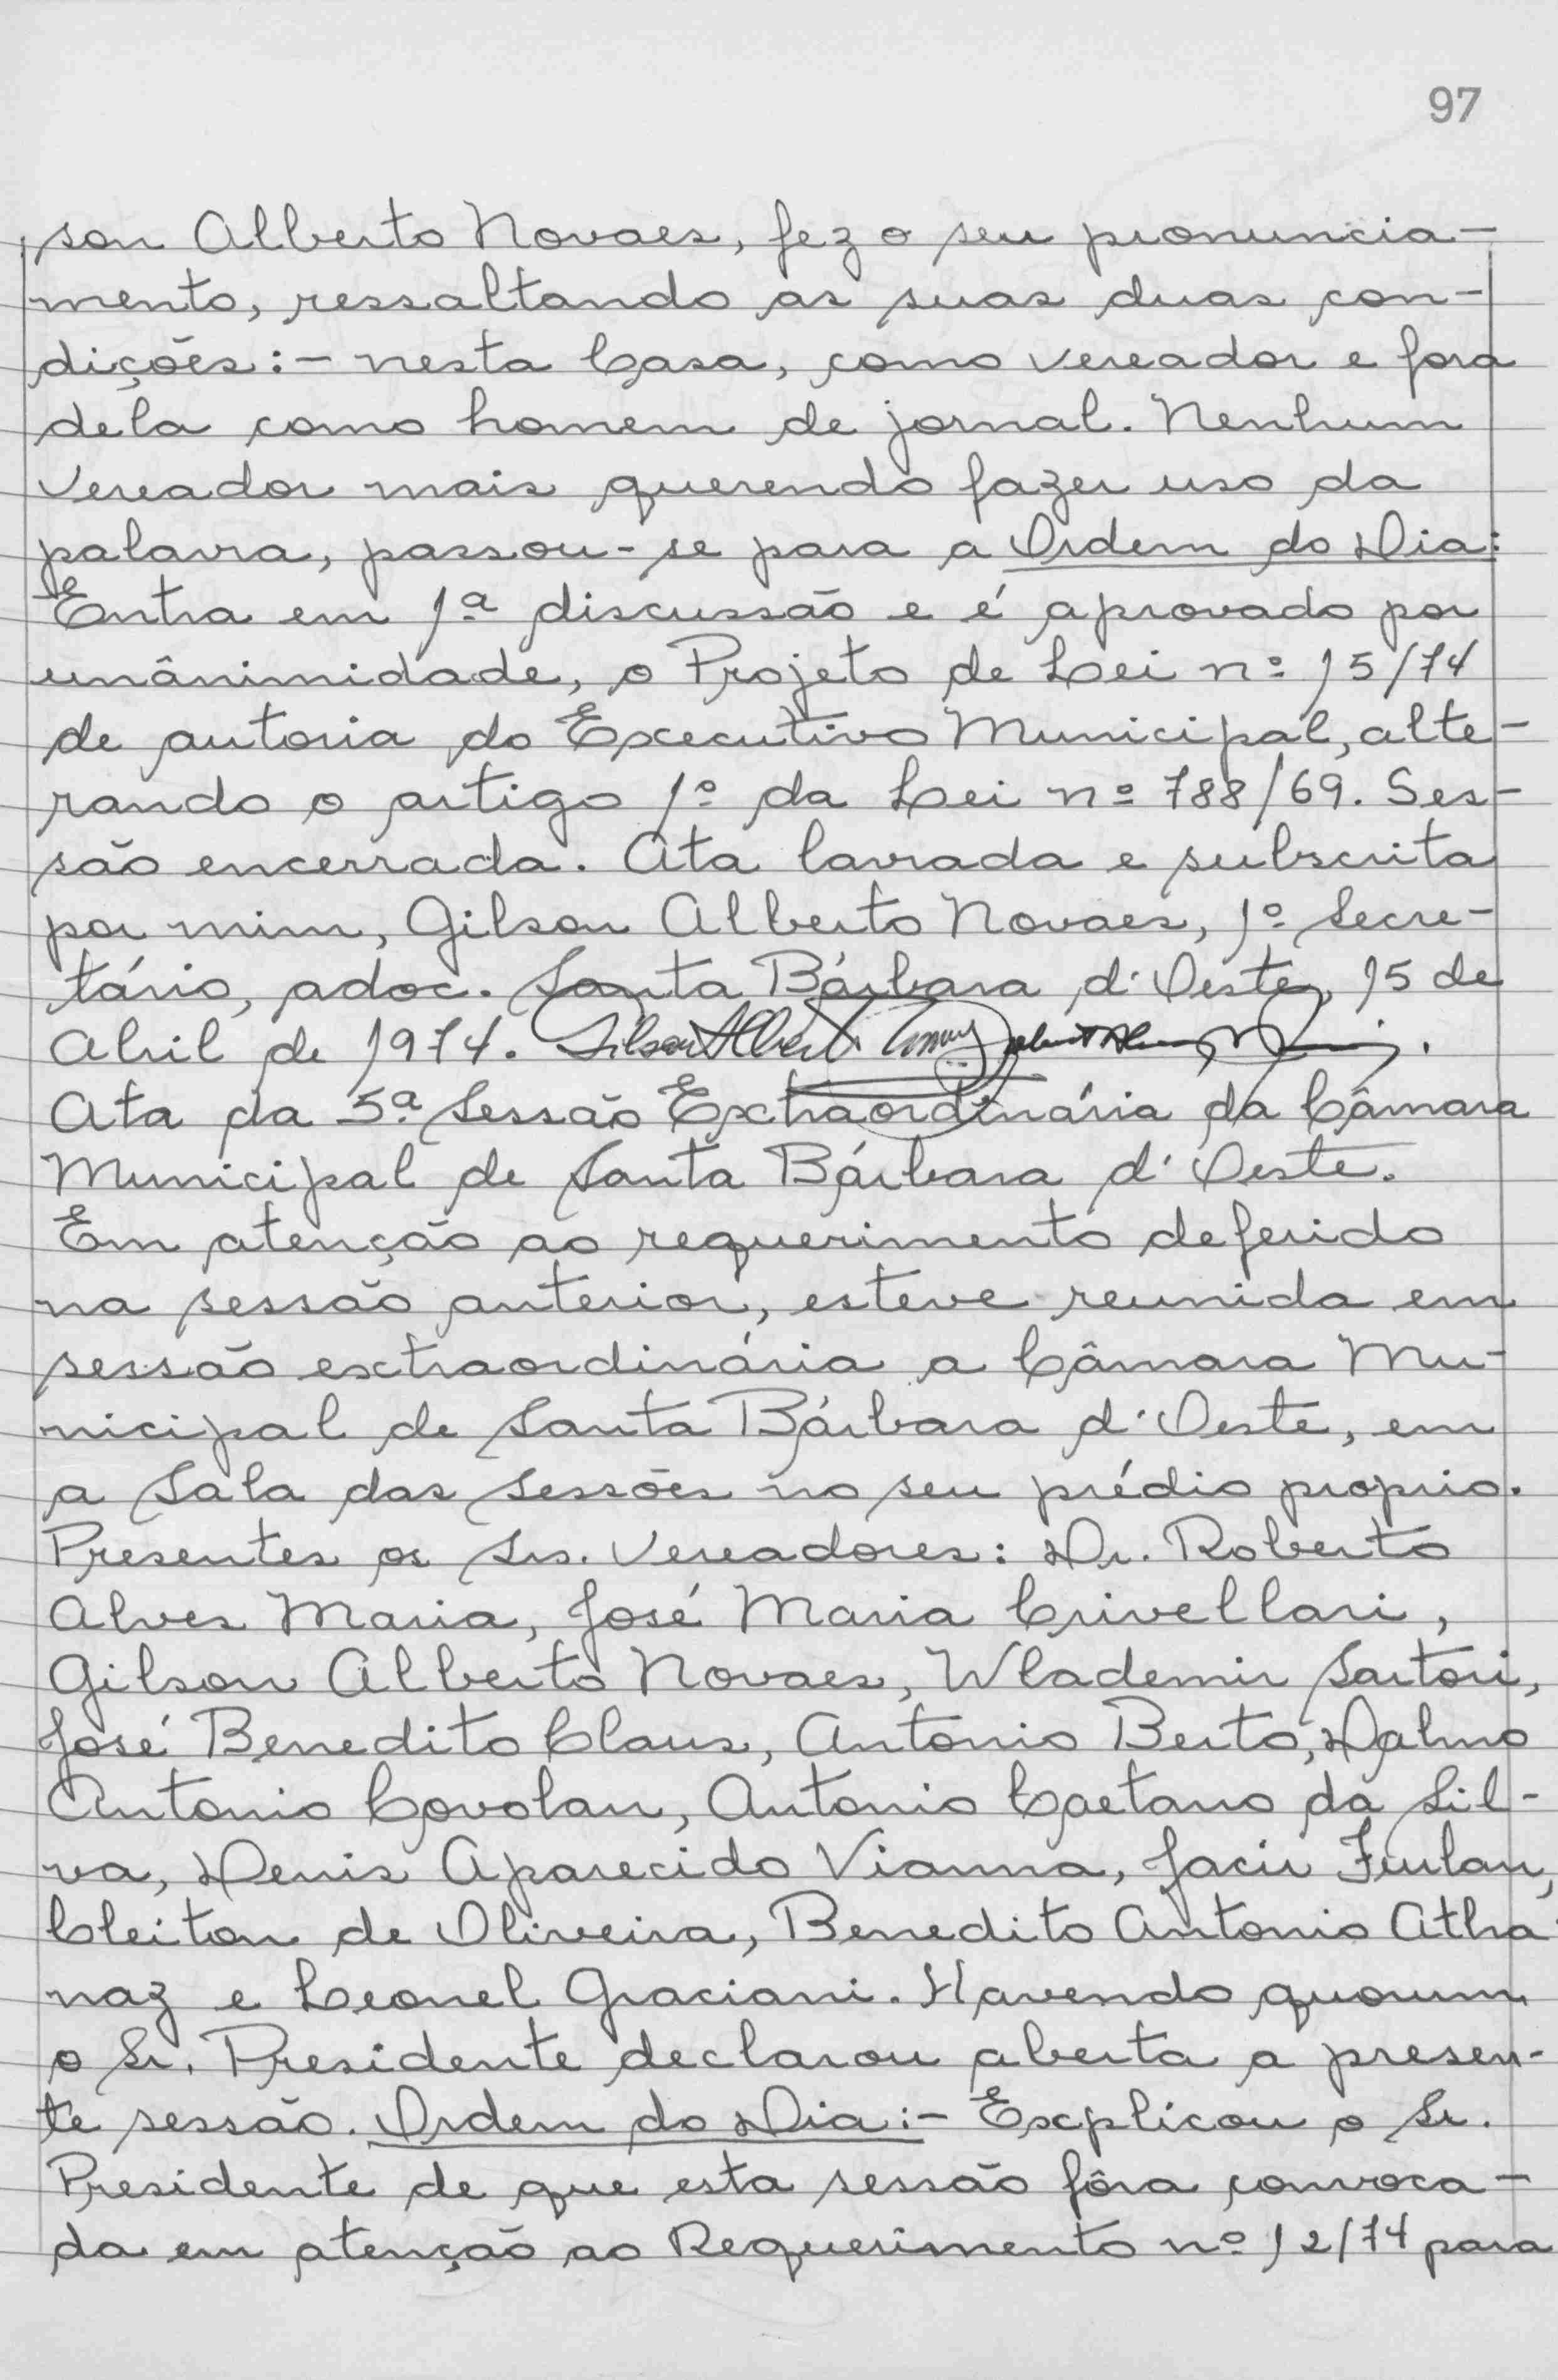 97
son Alberto Novaes, fez o seu pronuncia-
mento, ressaltando as suas duas con-
dições:- nesta Casa, como vereador e fora
dela como homem de jornal. Nenhum
Vereador mais querendo fazer uso da
palavra, passou-se para a Ordem do Dia:
Entra em 1ª discussão e é aprovado por
unânimidade, o Projeto de Lei nº 15/74
de autoria do Executivo Municipal, alte-
rando o artigo 1º da Lei nº 788/69. Ses-
são encerrada. Ata lavrada e subscrita
por mim, Gilson Alberto Novaes, 1º Secre-
tário, adoc. Santa Bárbara d'Oeste, 15 de
Abril de 1974. Gilson Alberto
Ata da 5ª Sessão Extraordinária da Câmara
Municipal de Santa Bárbara d'Oeste.
Em atenção ao requerimento deferido
na sessão anterior, esteve reunida em
sessão extraordinária a Câmara Mu-
nicipal de Santa Bárbara d'Oeste, em
a Sala das Sessões no seu prédio proprio.
Presentes os Srs. Vereadores: Dr. Roberto
Alves Maria, José Maria Crivellari,
Gilson Alberto Novaes, Wlademir Sartori,
José Benedito Claus, Antonio Berto, Dalmo
Antonio Covolan, Antonio Caetano da Sil-
va, Denis Aparecido Vianna, Jacir Furlan,
Cleiton de Oliveira, Benedito Antonio Atha-
naz e Leonel Graciani. Havendo quorum
o Sr. Presidente declarou aberta a presen-
te sessão. Ordem do Dia:- Explicou o Sr.
Presidente de que esta sessão fôra convoca-
da em atenção ao Requerimento nº 12/74 para